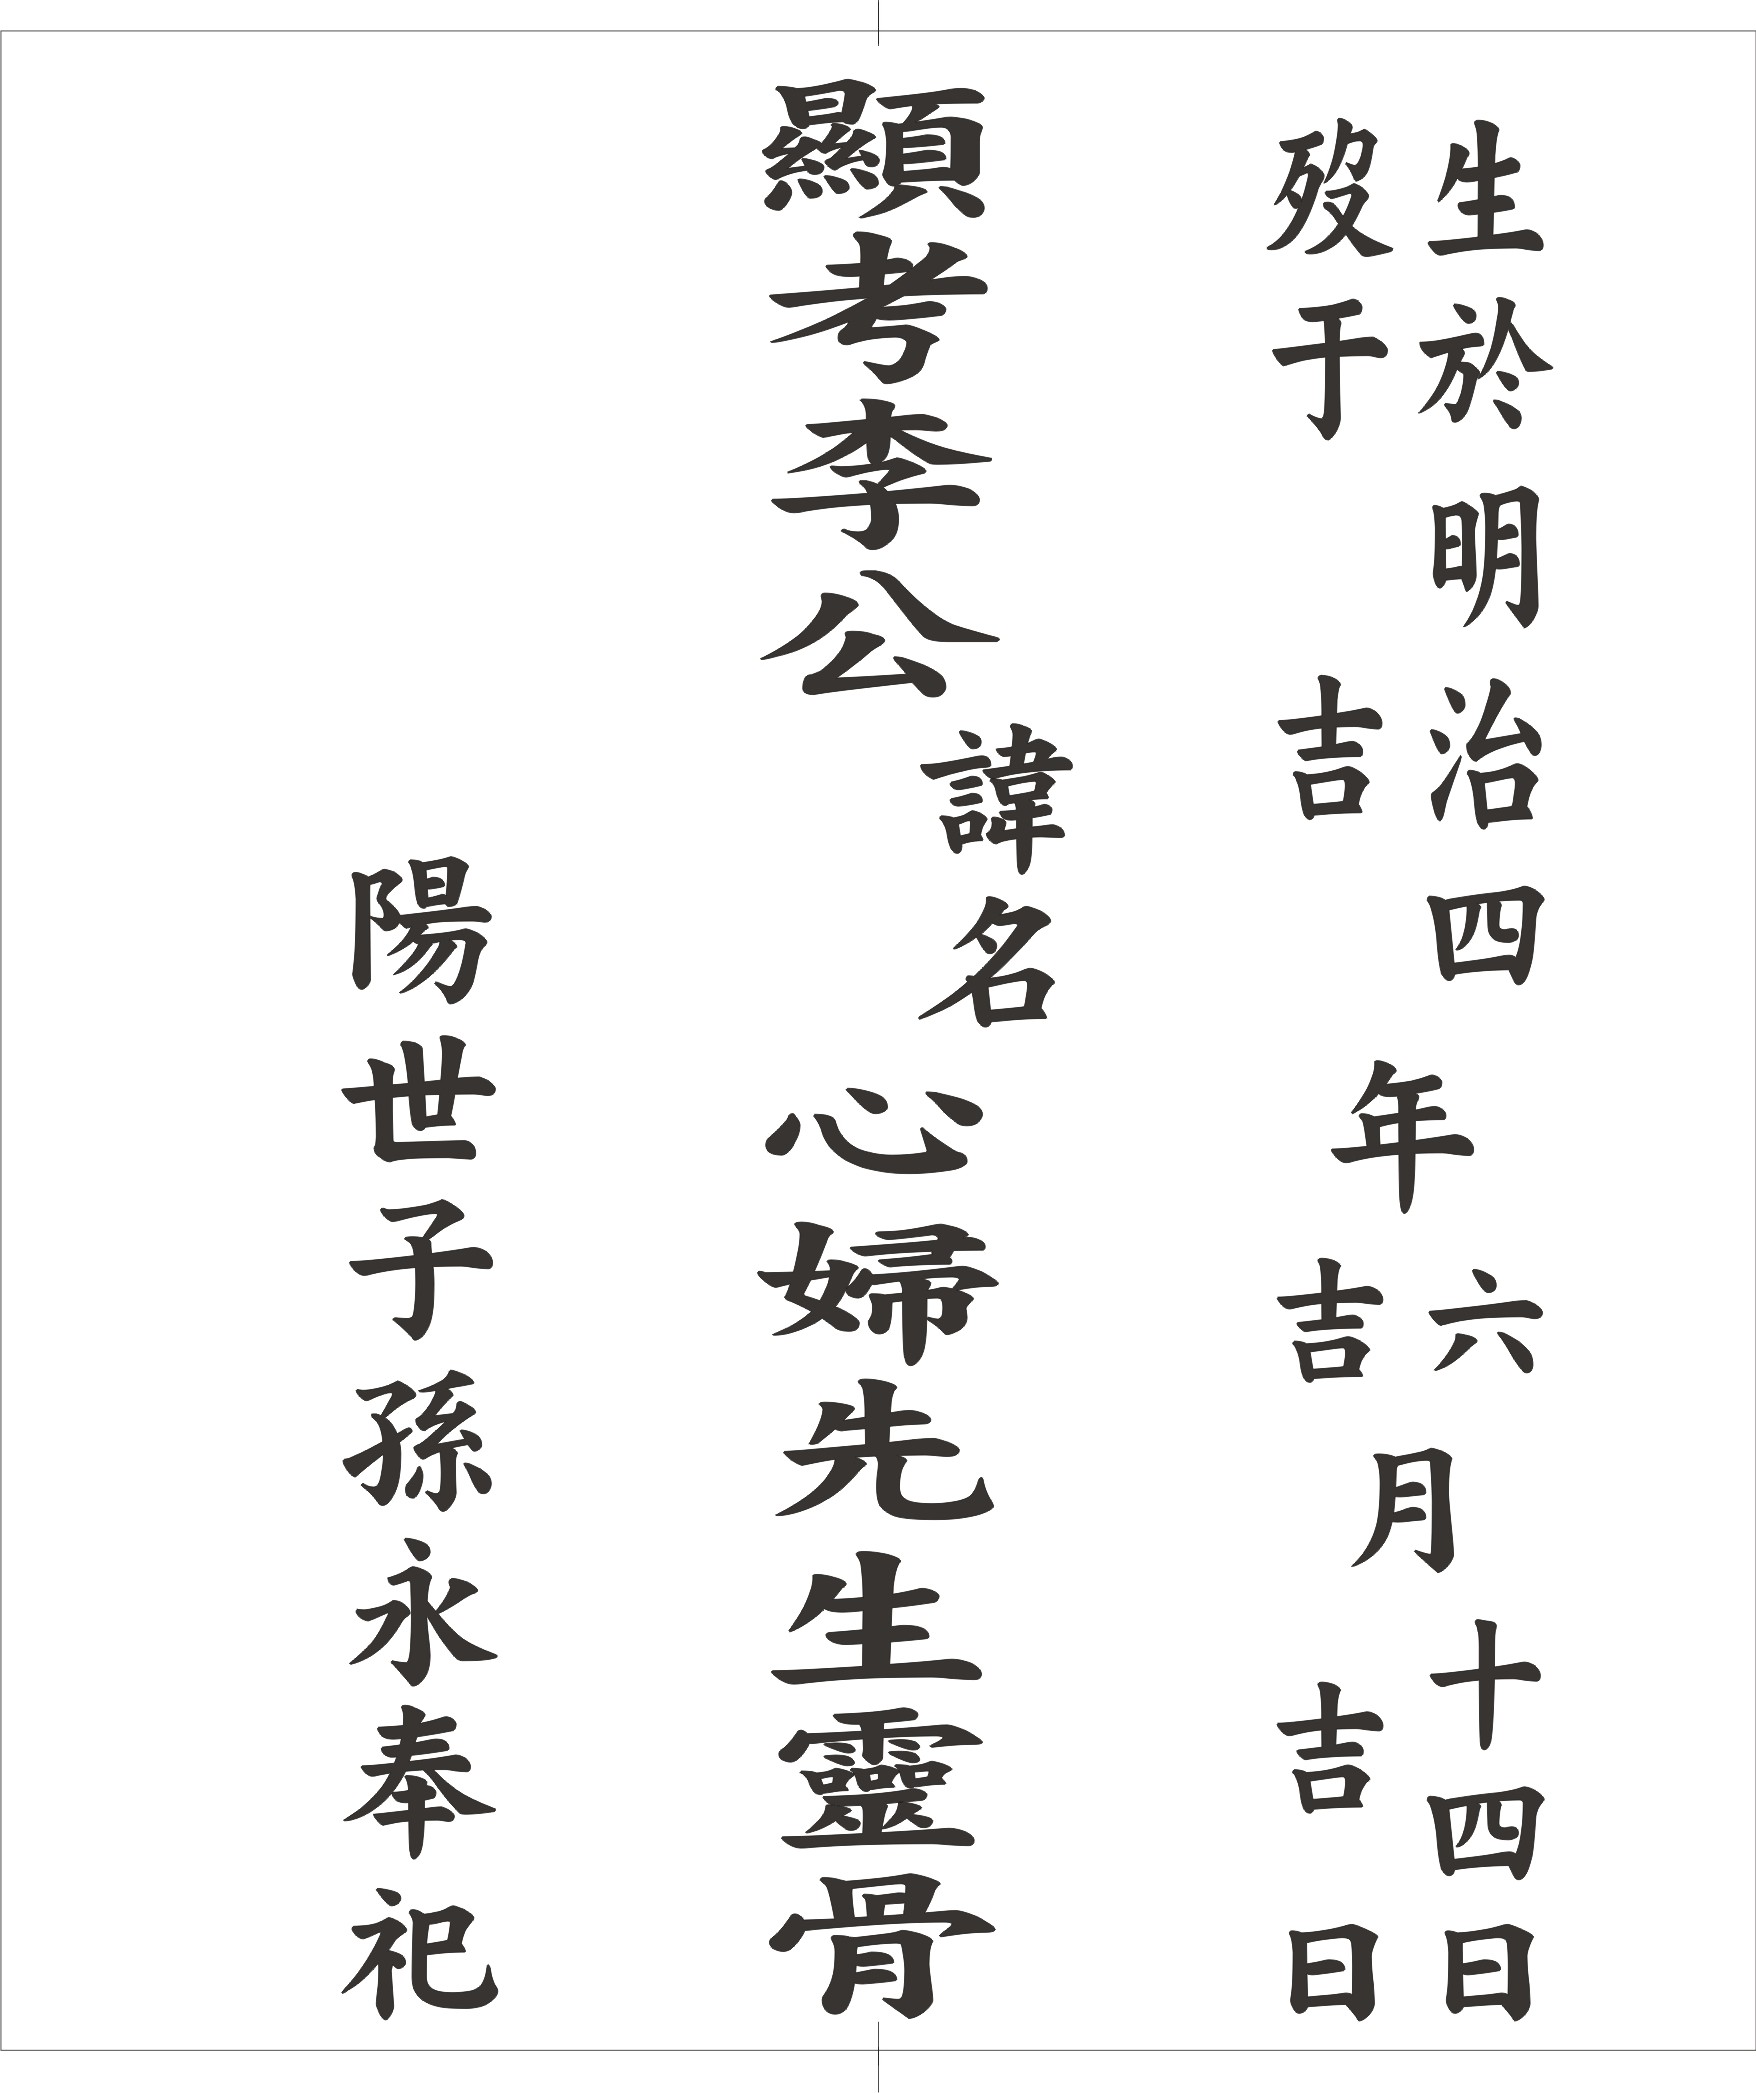 生於明治四年六月十四日
歿于吉吉吉日
顯考李公諱名心婦先生靈骨
陽世子孫永奉祀